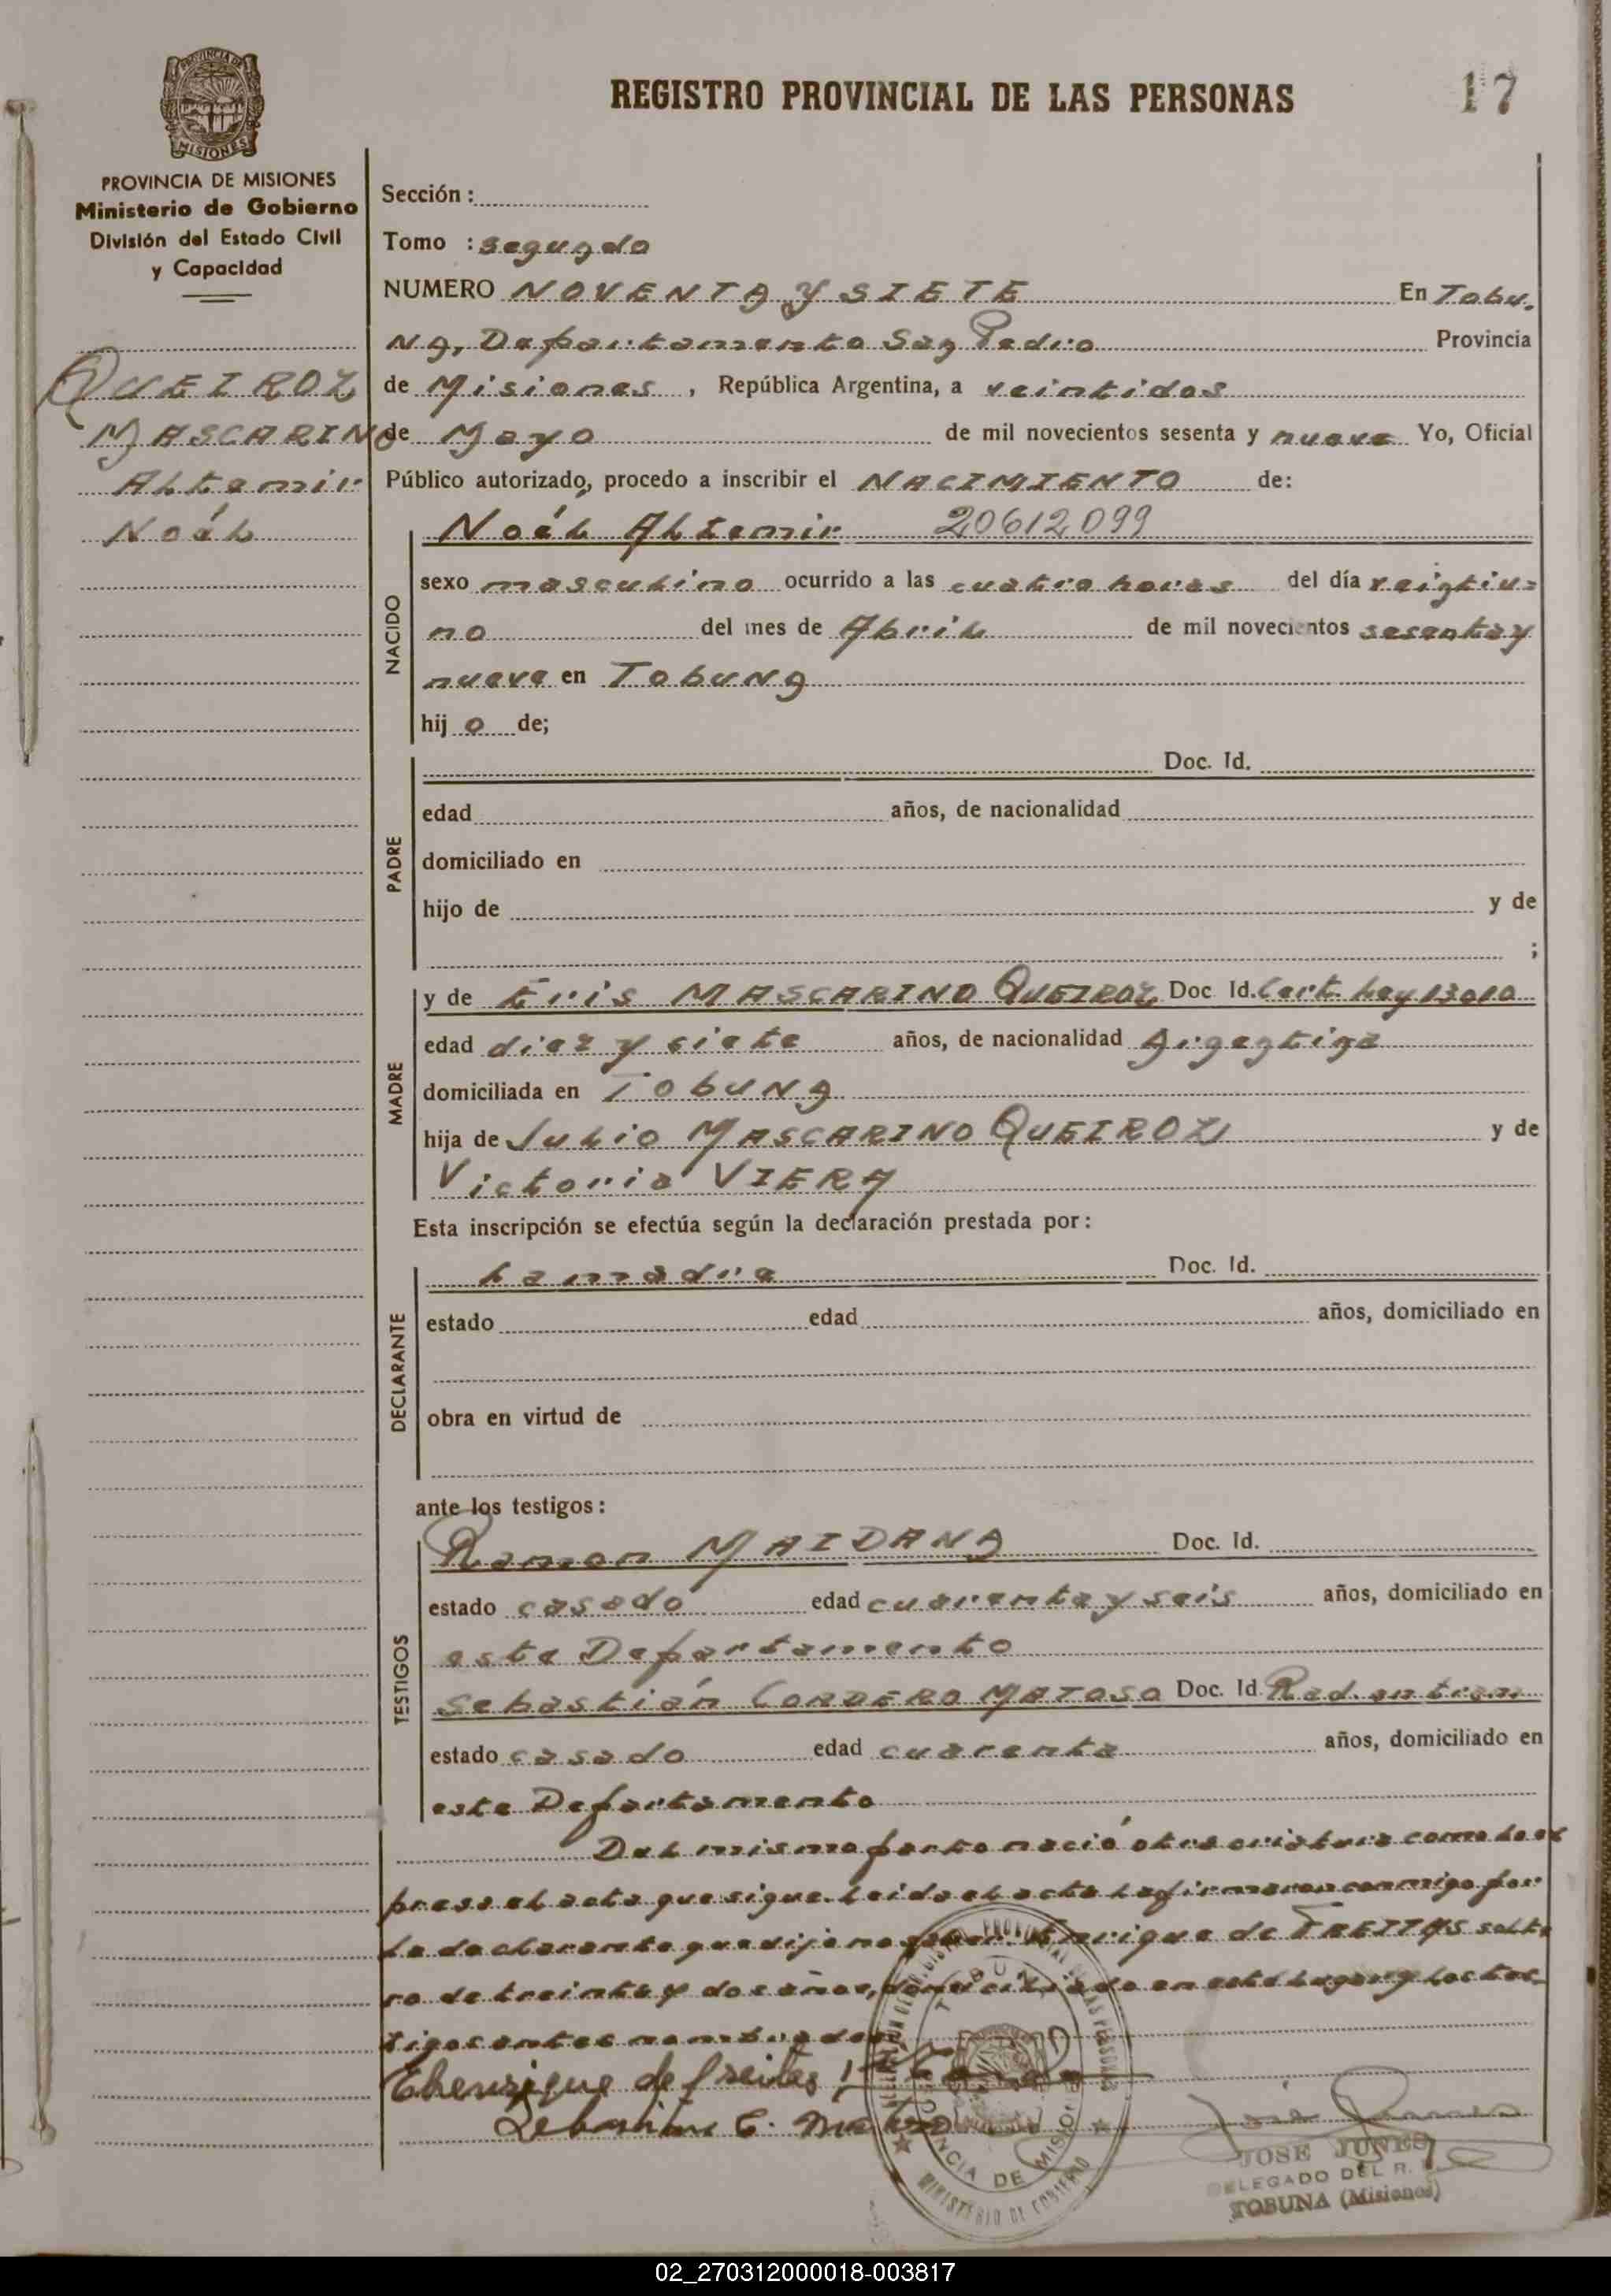 REGISTRO PROVINCIAL DE LAS PERSONAS
17
MISIONES
PROVINCIA DE MISIONES
Ministerio de Gobierno
División del Estado Civil
y Capacidad
QUEIROZ
MASCARINO
Altemir
Noél
Sección :
Tomo : segundo
NUMERO NOVENTA Y SIETE En Tobu.
NA, Departamento San Pedro Provincia
de Misiones , República Argentina, a veintidos
de Mayo de mil novecientos sesenta y nueve Yo, Oficial
Público autorizado, procedo a inscribir el NACIMIENTO de:
NACIDO
Noél Altemir 20612099
sexo masculino ocurrido a las cuatro horas del día veintiu=
no del mes de Abril de mil novecientos sesenta y
nueve en TobuNA
hij o de;
PADRE
Doc. Id.
edad años, de nacionalidad
domiciliado en
hijo de y de
;
MADRE
y de Eris MASCARINO QUEIROZ Doc Id. Cert. Ley 13010
edad diez y siete años, de nacionalidad Argentina
domiciliada en TobuNA
hija de Julio MASCARINO QUEIROZ y de
Victoria VIERA
Esta inscripción se efectúa según la declaración prestada por :
DECLARANTE
La madre Doc. Id.
estado edad años, domiciliado en
obra en virtud de
ante los testigos :
TESTIGOS
Ramon MAIDANA Doc. Id.
estado casado edad cuarenta y seis años, domiciliado en
este Departamento
Sebastián CORDERO MATOSO Doc. Id Rad. en tram
estado casado edad cuarenta años, domiciliado en
este Departamento
Del mismo parto nació otra criatura como lo ex
presa el acta que sigue. Leida el acta la firmaron conmigo por
la declarante que dijo no saber. Enrique de FREITAS solte
ro de treinta y dos años, domiciliado en este lugar y los tes
tigos antes nombrados
Ehenrique de freitas
Sebastian C.
PROVINCIA DE MISIONES
MINISTERIO DE GOBIERNO
JOSE JUNES
DELEGADO DEL R.
TOBUNA (Misiones)
02_270312000018-003817